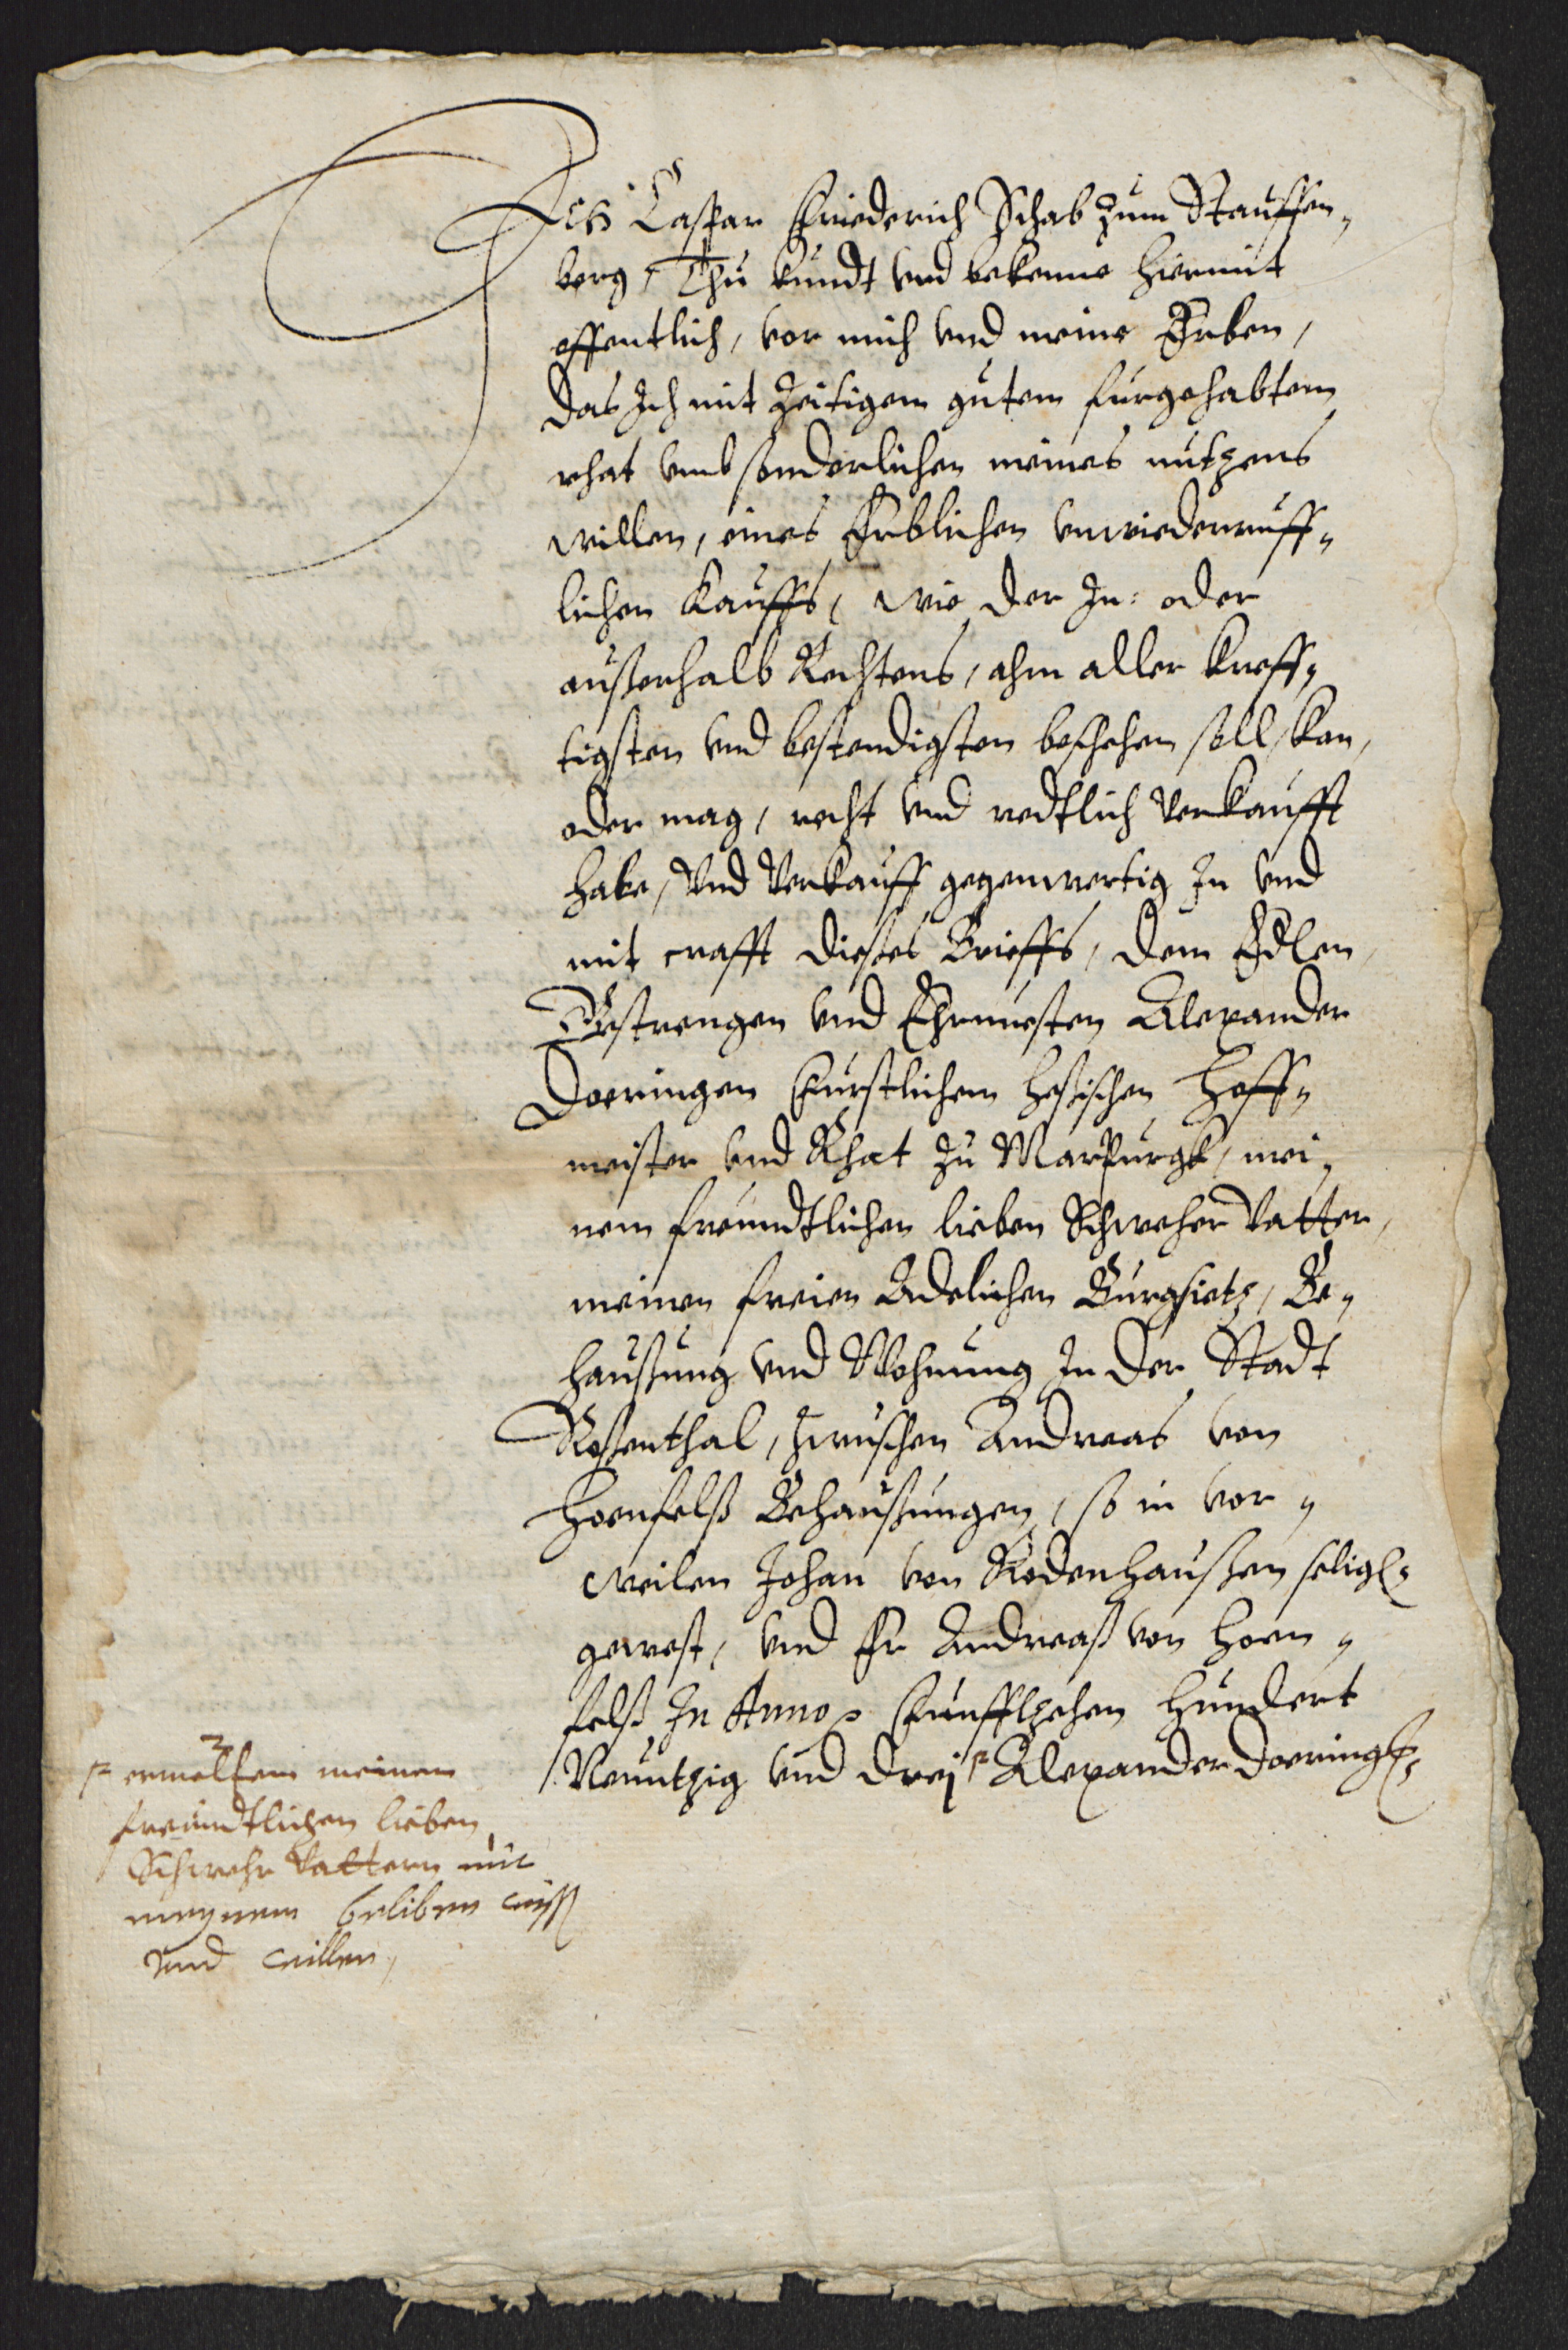 Ich Caspar Friederich Schab zum Stauffen„
berg, Thu kundt vnd bekenne hiermit
offentlich, vor mich vnd meine Erben,
das Ich mit zeitigem gutem furgehabtem
rhat vmb sonderlichen meines nutzens
willen, eines Erblichen vnwiederruff„
lichen Kauffs, wie der In: oder
außerhalb Rechtens, ahm aller kreff„
tigsten vnd bestendigsten beschehen soll, kan,
oder mag, recht vnd redtlich verkaufft
habe, Vnd Verkauff gegenwertig In vnd
mit crafft dießes Brieffs, dem Edlen,
Gestrengen vnd Ehrnuesten Alexander
Doeringen Furstlichem Heßischen Hoff„
meister vnd Rhat zu Marpurgk, mei„
nem freundtlichen lieben Schweher Vatter,
meinen freien Adelichen Burgsietz, Be„
haußung vnd Wohnung In der Stadt
Roßenthal, zwuschen Andreas von
Hoenfelß Behaußungen, so in vor„
weilen Johan von Rodenhaußen selig
gewest, vnd Er Andreaß von Hoen„
felß In Anno Funfftzehen Hundert
Neuntzig vnd drej Alexander Doering
ermeltem meinem
freundtlichen lieben
Schwehr Vattern mit
meynem beliben
vnd willen,